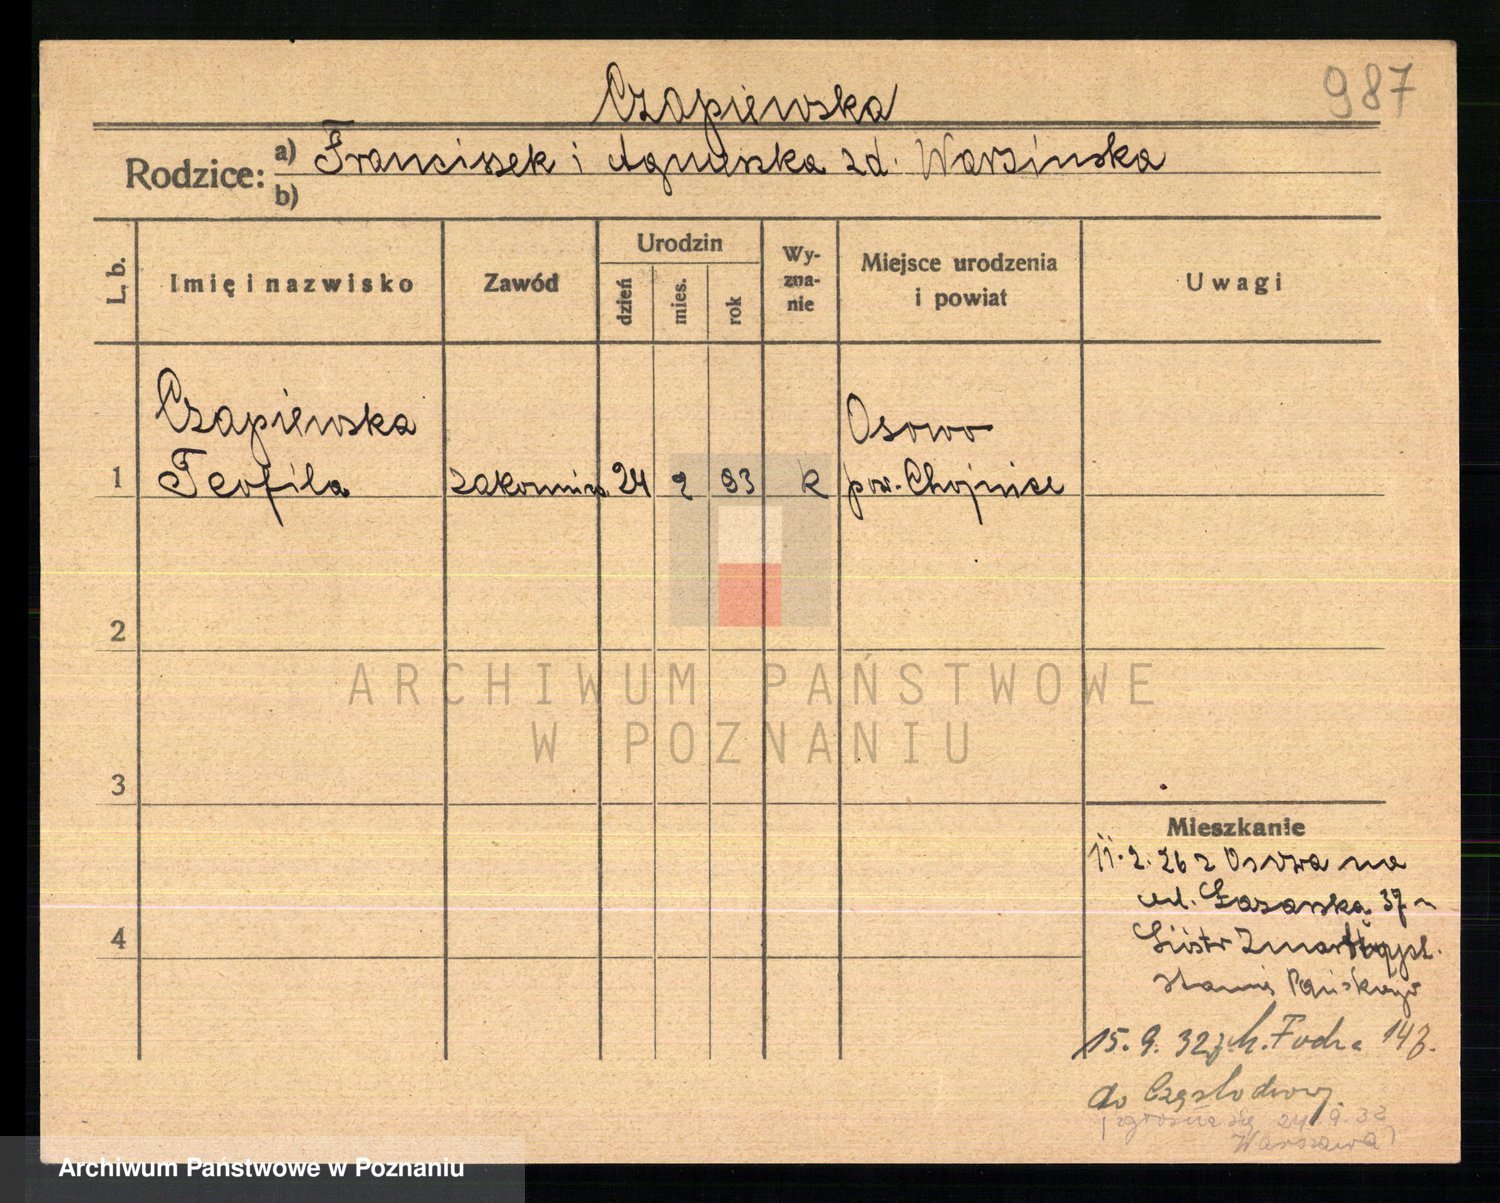 987
Czapiewska
Rodzice: a) Franciszek i Agnieszka zd. Warsińska
b)
L. b.
Imię i nazwisko
Zawód
Urodzin
dzień
mies.
rok
Wy-
zna-
nie
Miejsce urodzenia
i powiat
Uwagi
Czapiewska
Osowo
1 Teofila zakonnica 24 2 93 k pow. Chojnice
2
ARCHIWUM PAŃSTWOWE
W POZNANIU
3
Mieszkanie
11. 2. 26 z Osowa na
ul. Łazarska 37
4
Sióstr Zmartwypst.
Pańskiego
15. 9. 32
do Częstochowy.
zgłosiła się 24. 9. 32
Warszawa)
Archiwum Państwowe w Poznaniu